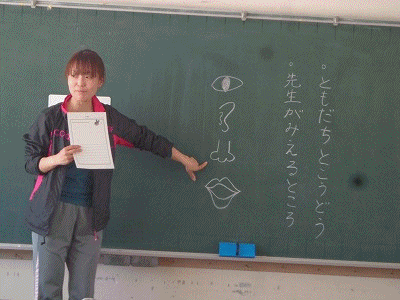 。ともだちとこうどう
。先生がみえるところ